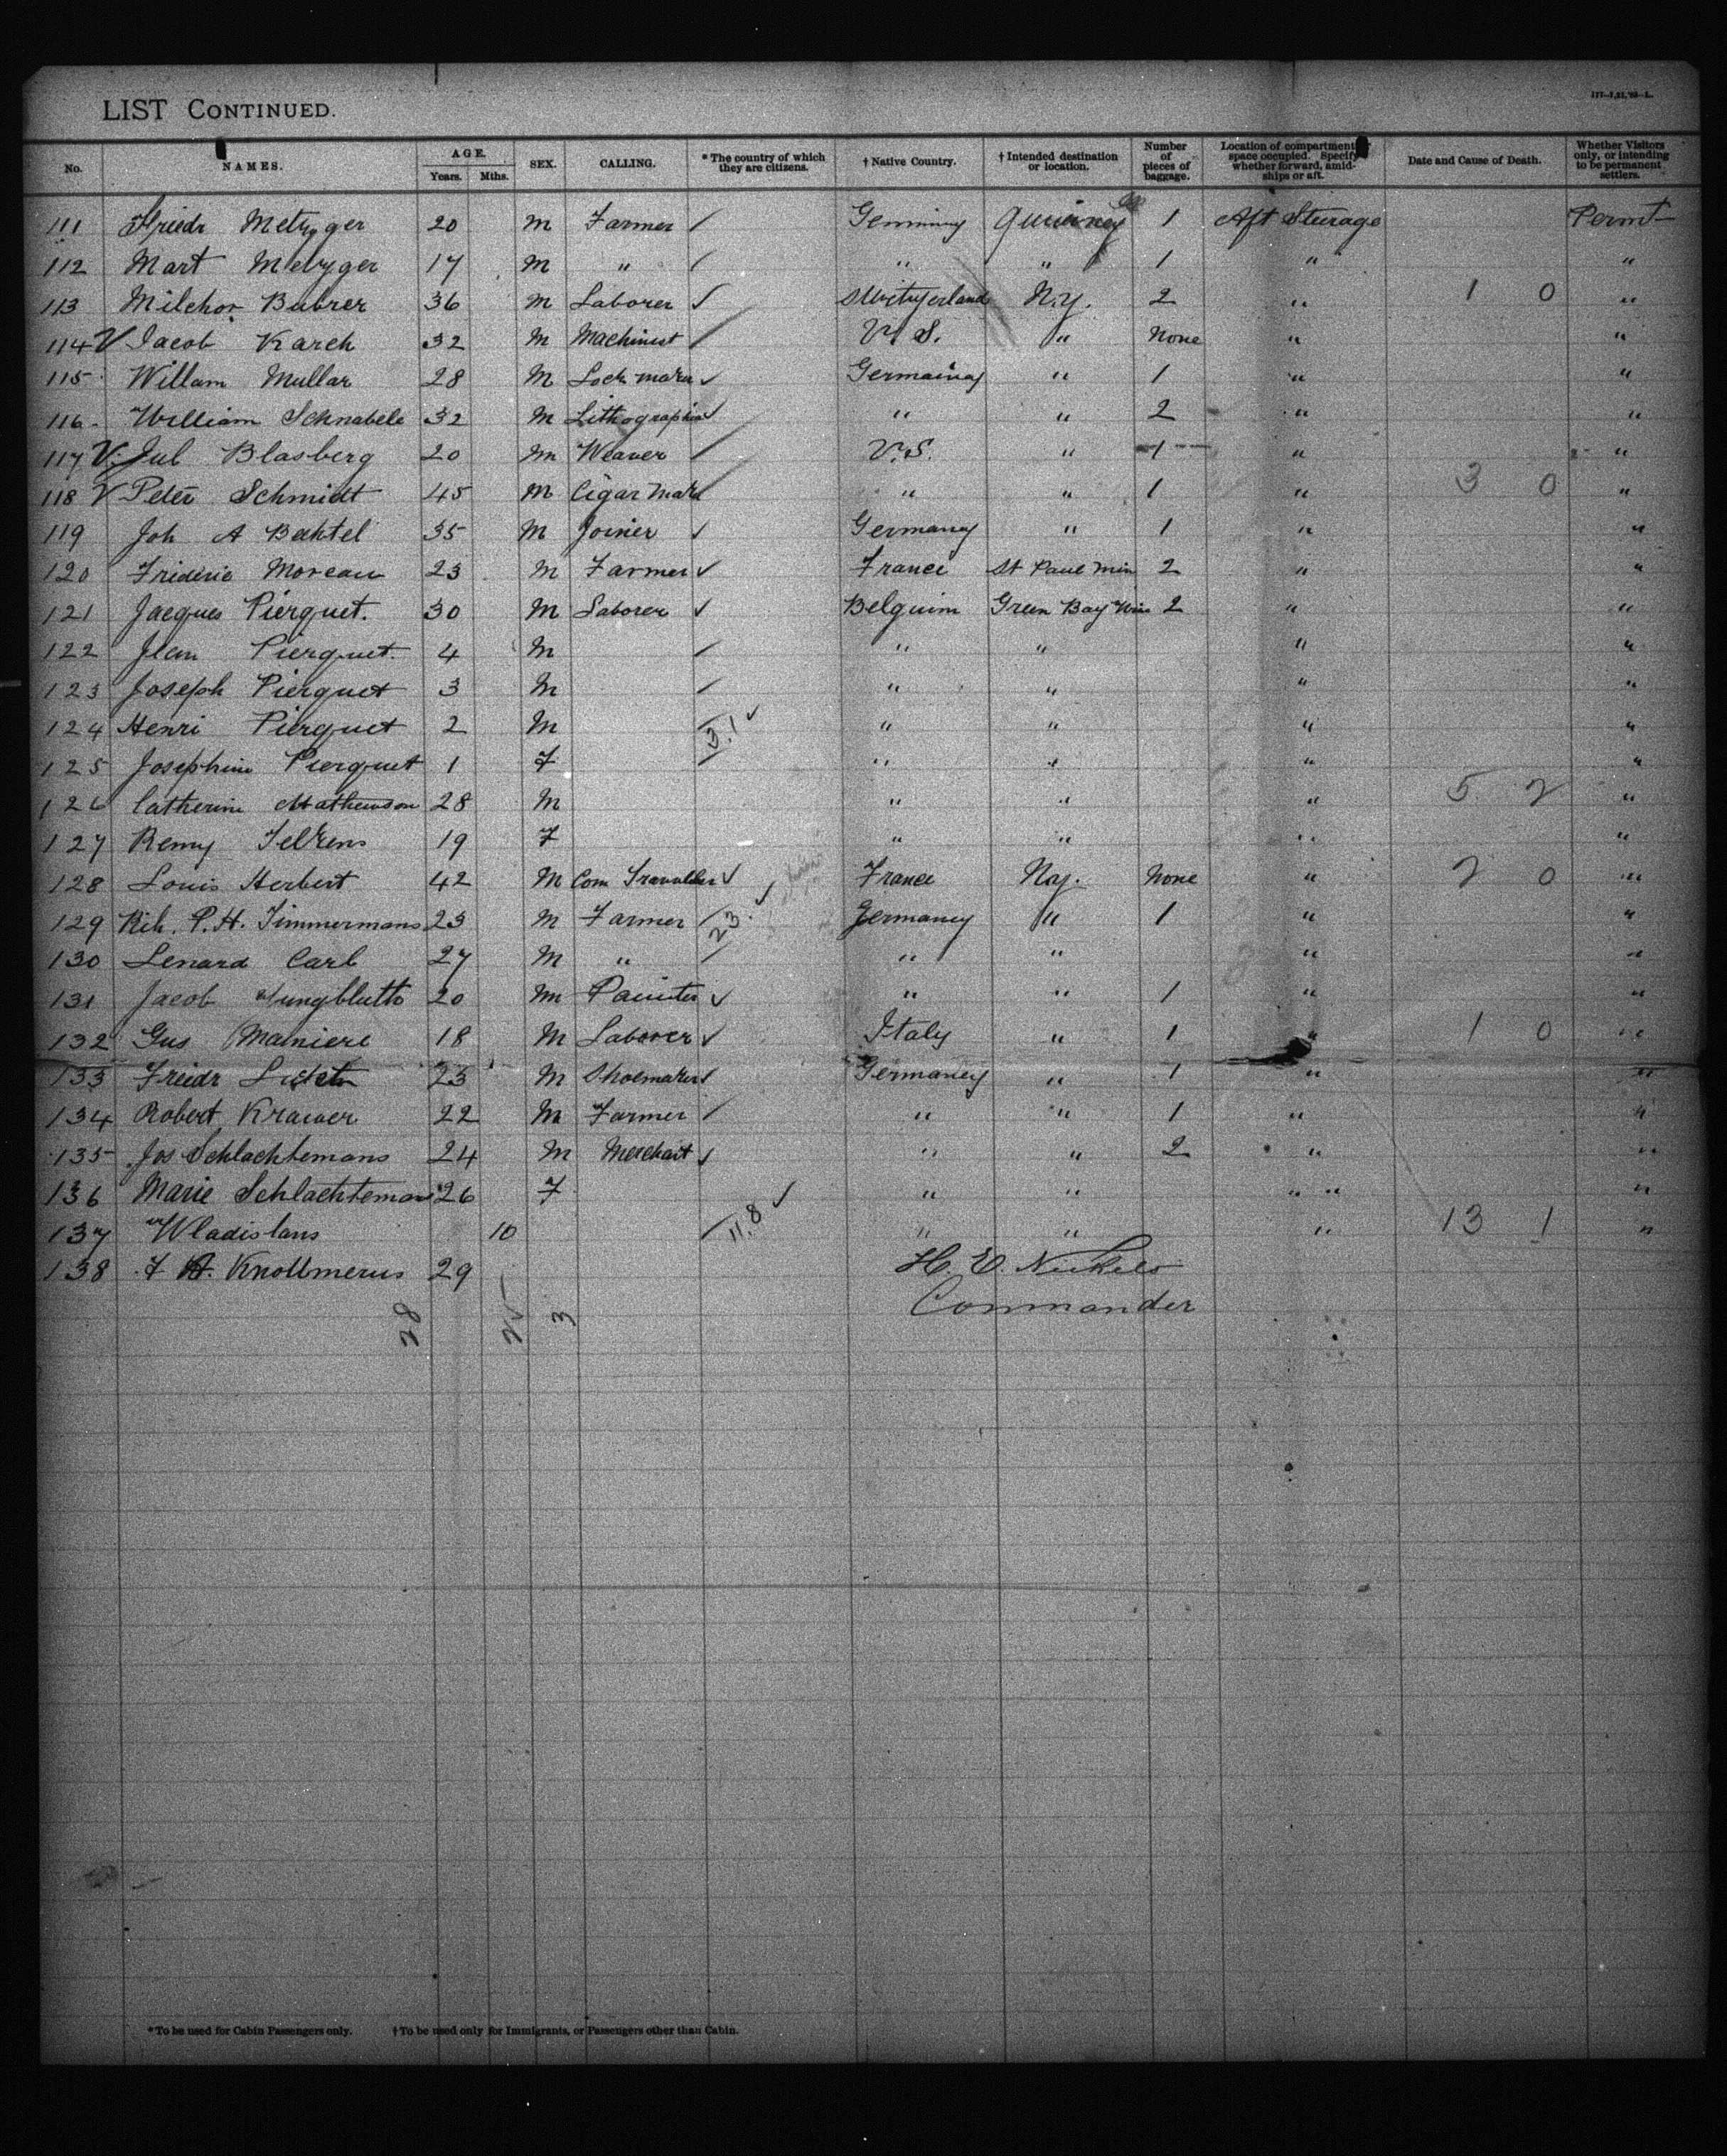 LIST CONTINUED.
No. NAMES. AGE. Years. Mths. SEX. CALLING. * The country of which they are citizens. † Native Country. † Intended destination or location. Number of pieces of baggage. Location of compartment or space occupied. Specify whether forward, amidships or aft. Date and Cause of Death. Whether Visitors only, or intending to be permanent settlers.
111 Friedr Metzger 20 M Farmer / 1 Aft Sturage Permt
112 Mart Metzger 17 M " / " " 1 " "
113 Milchor Buhrer 36 M Laborer ✓ Switzerland N.y. 2 " 1 0 "
114 V Jacob Karch 32 M Machinist / U.S. " None " "
115 Willam Mullar 28 M Lock maker ✓ " 1 " "
116 William Schnabele 32 M ✓ " " 2 " "
117 V Jul Blasberg 20 M Weaver / U.S. " 1 " "
118 V Peter Schmidt 45 M Cigar Makr / " " 1 " 3 0 "
119 Joh A Bahtel 35 M Joiner ✓ Germany " 1 " "
120 Frideric Moreau 23 M Farmer ✓ France St Paul Min 2 " "
121 Jacques Pierquet. 30 M Laborer ✓ Belguim Green Bay Wis 2 " "
122 Jean Pierquet. 4 M / " " " "
123 Joseph Pierquet 3 M / " " " "
124 Henri Pierquet 2 M / 3.1 ✓ " " " "
125 Josephine Pierquet 1 F / " " " "
126 Catherine Mathewson 28 M " " " 5 2 "
127 Remy 19 F " " " "
128 Louis Herbert 42 M Com Travuller ✓ France None " 2 0 "
129 Rich. P. H. Timmermans 23 M Farmer / 23. ✓ Germany " 1 " "
130 Lenard Carl 27 M " / " " " "
131 Jacob Jungbluth 20 M Painter ✓ " " 1 " "
132 Gus Mainiere 18 M Laborer ✓ Italy " 1 " 1 0 "
133 Freidr 23 M Shoemaker ✓ Germaney " 1 " "
134 Robert Krawer 22 M Farmer / " " 1 " "
135 Jos Schlachtemans 24 M Merchant ✓ " " 2 " "
136 Marie Schlachtemans 26 F " " " " "
137 Wladislaus 10 / 11.8 ✓ " " " 13 1 "
138 F A. Knollmerus 29 H. E. Nickels
28 25 3 Commander
* To be used for Cabin Passengers only. † To be used only for Immigrants, or Passengers other than Cabin.